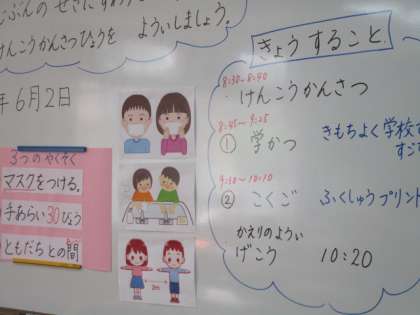 じぶんの せきに すわ
けんこうかんさつひょうを よういしましょう。
年 6月2日
3つの やくそく
マスクをつける。
手あらい30びょう
ともだちとの間
2m
きょう すること
8:30~8:40
けんこうかんさつ
8:45~9:25
① 学かつ きもちよく学校で
すご
9:30~10:10
② こくご ふくしゅうプリント
かえりのようい
げこう 10:20